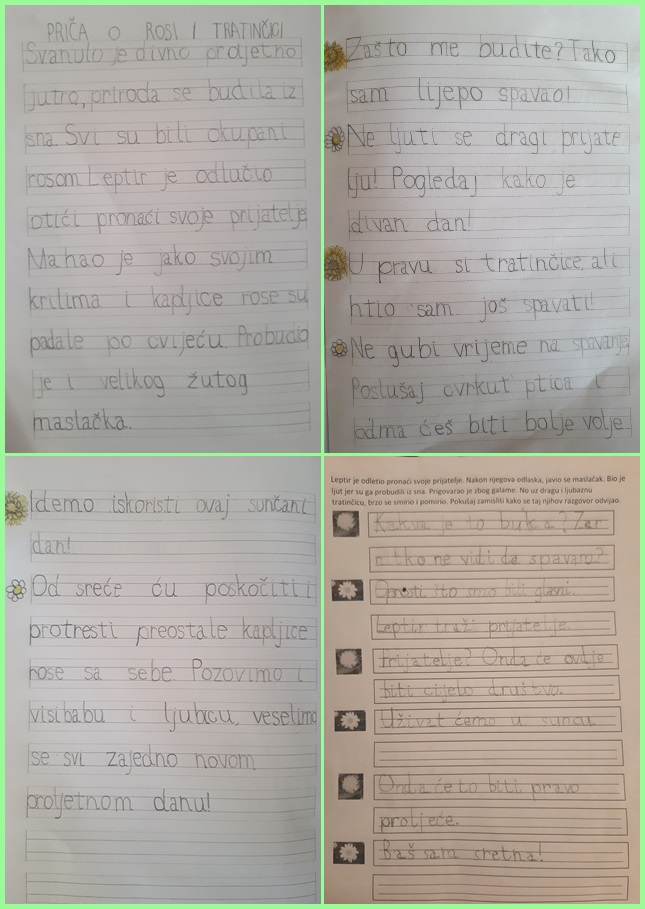 PRIČA O ROSI I TRATINČICI
Svanulo je divno proljetno
jutro, priroda se budila iz
sna. Svi su bili okupani
rosom. Leptir je odlučio
otići pronaći svoje prijatelje.
Mahao je jako svojim
krilima i kapljice rose su
padale po cvijeću. Probudio
je i velikog žutog
maslačka.
Zašto me budite? Tako
sam lijepo spavao!
Ne ljuti se dragi prijate
lju! Pogledaj kako je
divan dan!
U pravu si tratinčice, ali
htio sam još spavati!
Ne gubi vrijeme na spavanje
Poslušaj cvrkut ptica i
odma ćeš biti bolje volje.
Idemo iskoristi ovaj sunčani
dan!
Od sreće ću poskočiti i
protresti preostale kapljice
rose sa sebe. Pozovimo i
visibabu i ljubicu, veselimo
se svi zajedno novom
proljetnom danu!
Leptir je odletio pronaći svoje prijatelje. Nakon njegova odlaska, javio se maslačak. Bio je
ljut jer su ga probudili iz sna. Prigovarao je zbog galame. No uz dragu i ljubaznu
tratinčicu, brzo se smirio i pomirio. Pokušaj zamisliti kako se taj njihov razgovor odvijao.
Kakva je to buka? Zar
nitko ne vidi da spavam?
Oprosti što smo bili glasni.
Leptir traži prijatelje.
Prijatelje? Onda će ovdje
biti cijelo društvo.
Uživat ćemo u suncu.
Onda će to biti pravo
proljeće.
Baš sam sretna!